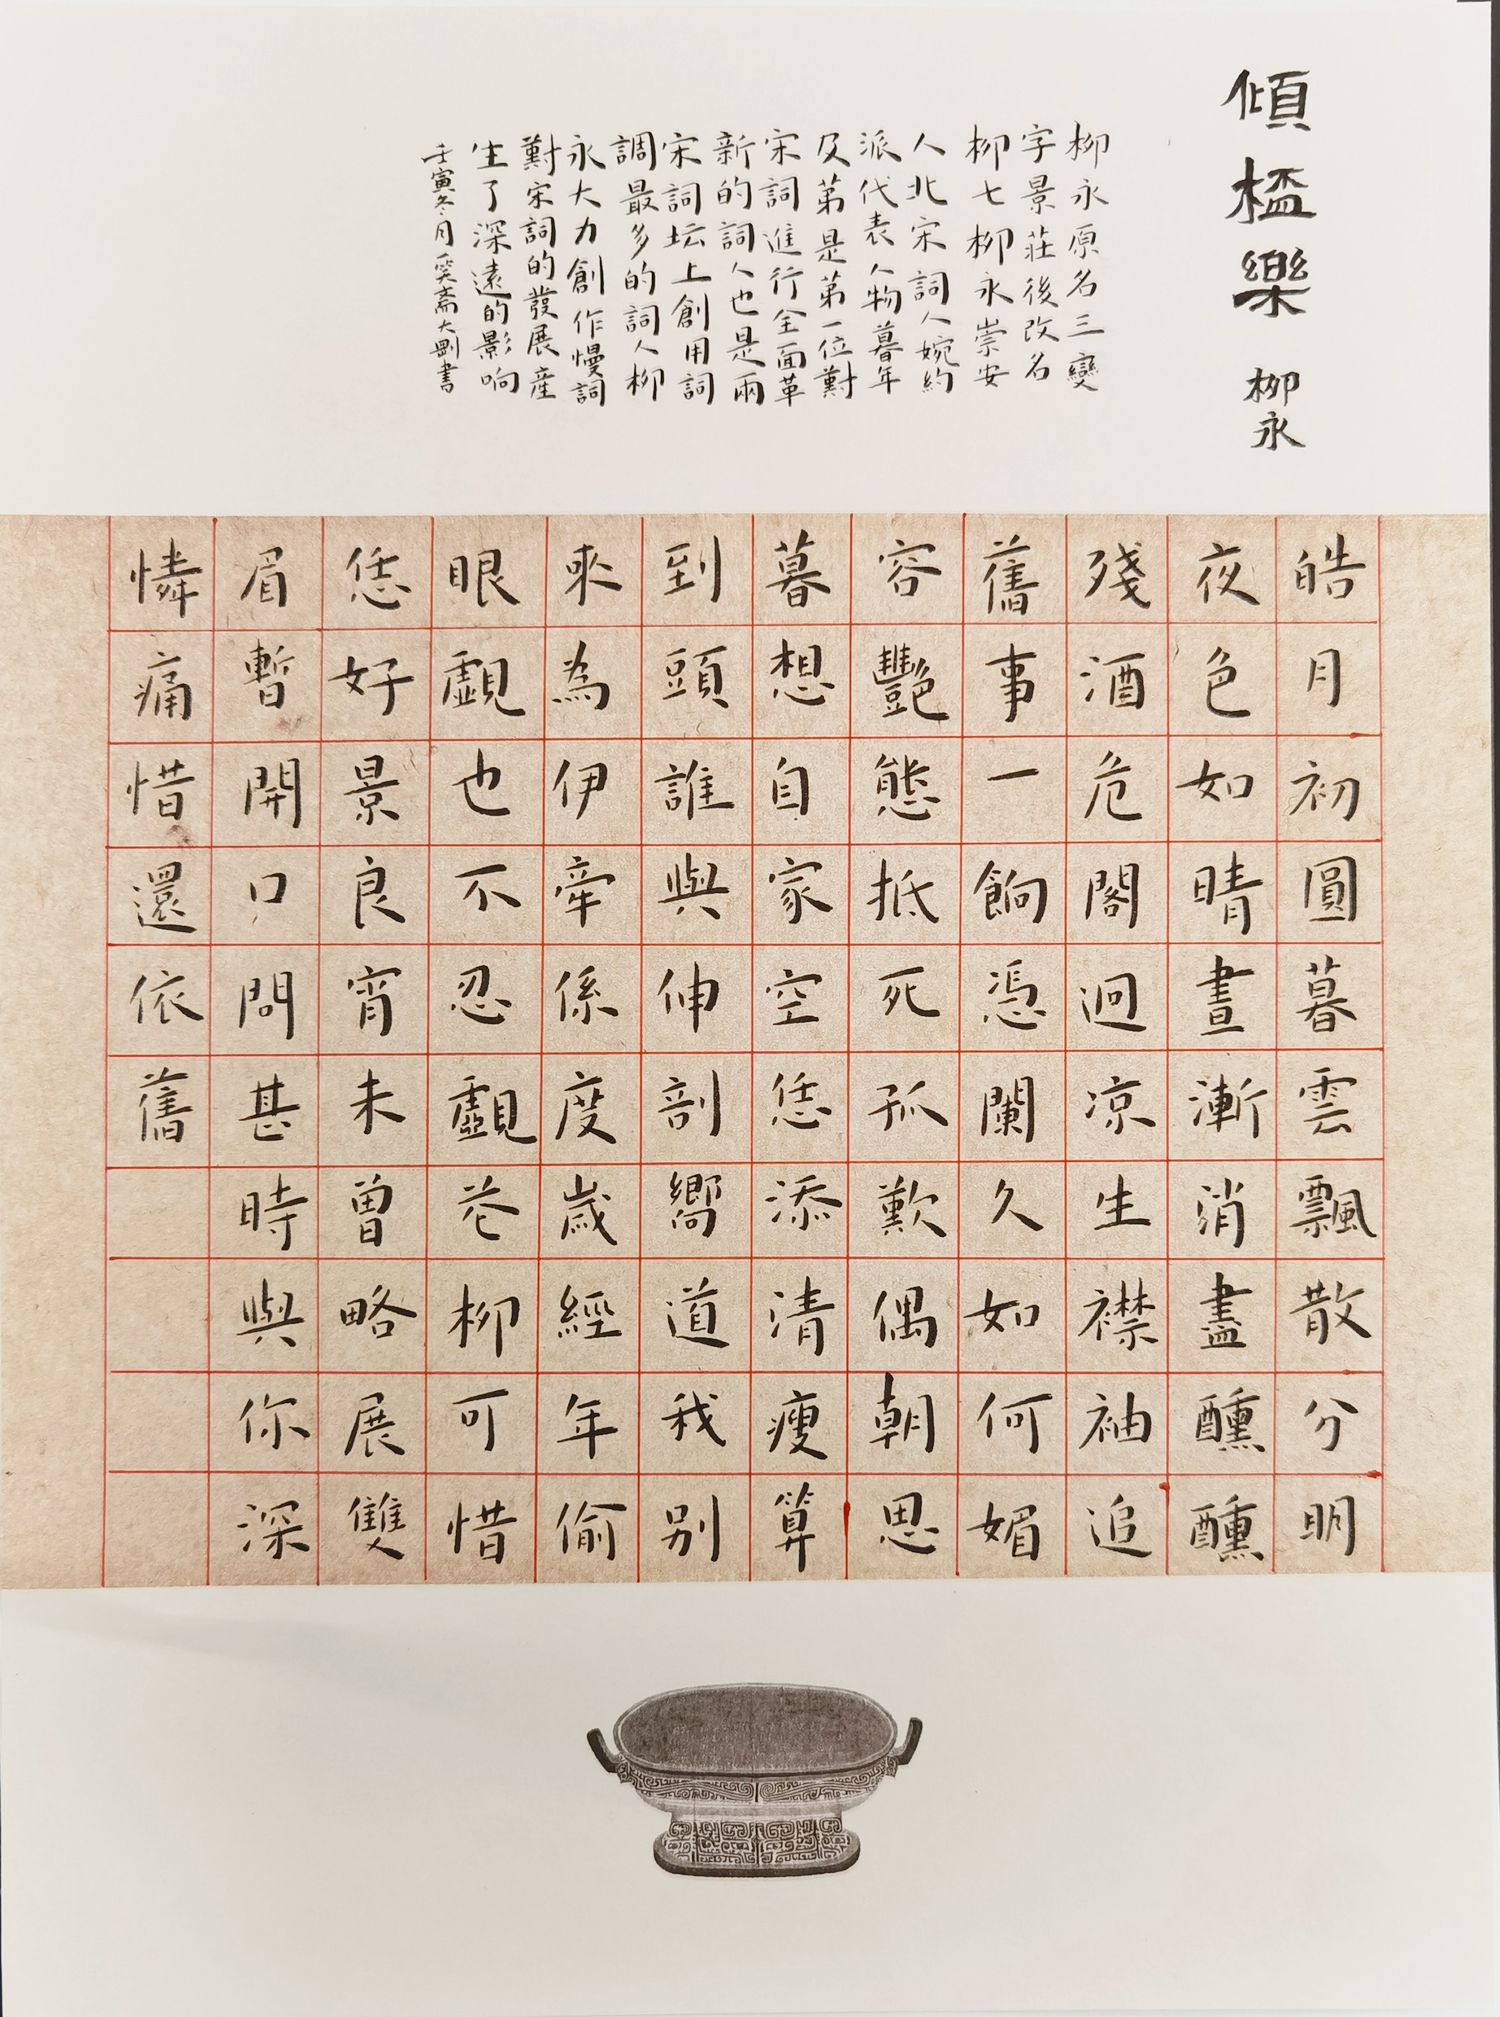 傾杯樂 柳永
柳永原名三變
字景莊後改名
柳七柳永崇安
人北宋詞人婉約
派代表人物暮年
及第是第一位對
宋詞進行全面革
新的詞人也是兩
宋詞坛上創用詞
調最多的詞人柳
永大力創作慢詞
對宋詞的發展産
生了深遠的影响
壬寅冬月 斋大剛書
皓月初圓暮雲飄散分明
夜色如晴晝漸消盡醺醺
殘酒危閣迥凉生襟袖追
舊事一餉憑闌久如何媚
容艷態抵死孤歡偶朝思
暮想自家空恁添清瘦算
到頭誰與伸剖嚮道我别
來為伊牽係度歲經年偷
眼覷也不忍覷花柳可惜
恁好景良宵未曾略展雙
眉暫開口問甚時與你深
憐痛惜還依舊